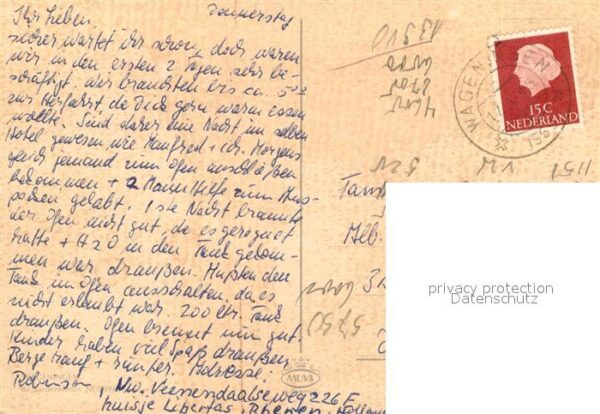 Donnerstag
Ihr Lieben,
sicher wartet ihr schon, doch waren
wir in den ersten 2 Tagen sehr be-
schäftigt, wir brauchten bis ca. 5
zur Herfahrt da Dick gern warm essen
wollte. Sind daher eine Nacht im selben
Hotel gewesen wie Manfred + ich. Morgens
gleich jemand zum Ofen anschließen
bekommen + 2 Mann Hilfe zum Aus-
packen gehabt. 1ste Nacht brannte
der Ofen nicht gut, da es geregnet
hatte + H2O in den Tank gekom-
men war draußen. Mußten den
Tank im Ofen ausschalten, da es
nicht erlaubt war. 200 ltr. Tank
draußen. Ofen brennt nun gut.
Kinder haben viel Spaß draußen
Berge rauf + runter. Adresse:
Robinson, Nw. Veenendaalseweg 226 F
huisje Libertas, Rhenen, Holland
13910
15 C
NEDERLAND
WAGENINGEN
1151
Alb.
MUVA
privacy protection
Datenschutz